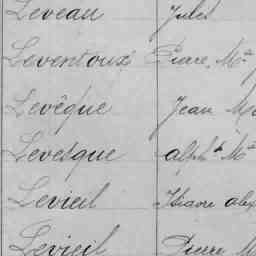 Leveau Jules
Leventoux Pierre, Mie
Levêque Jean Ma
Levesque alphse Mie
Levieil Isidore alex
Levieil Pierre M